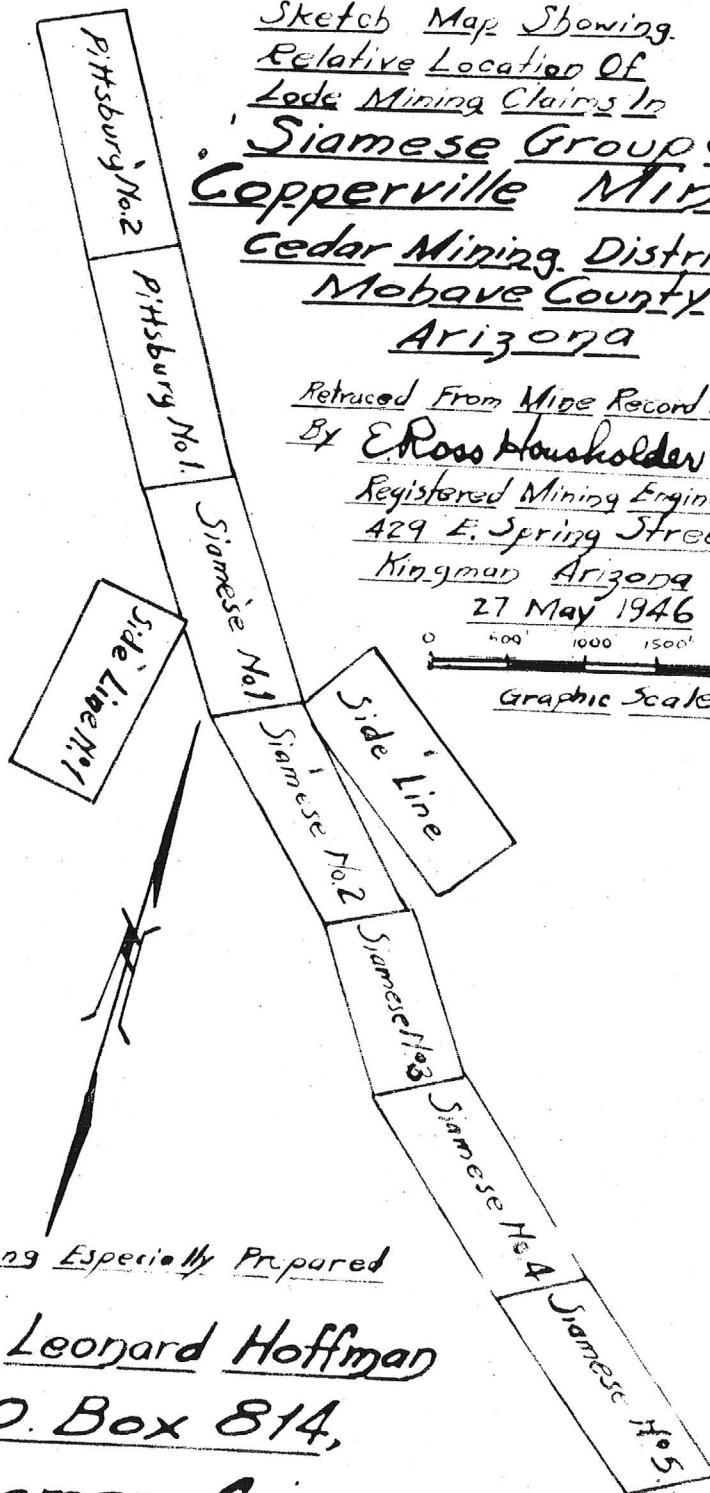 Sketch Map Showing
Relative Location Of
Lode Mining Claims In
Siamese Group
Copperville Min
Cedar Mining Distri
Mohave County
Arizona
Retraced From Mine Record
By E Ross Housholder
Registered Mining Engin
429 E. Spring Stree
Kingman Arizona
27 May 1946
0 500' 1000 1500'
Graphic Scale
Pittsburg No.2
Pittsburg No1.
Siamese No1.
Side Line No1
Side Line
Siamese No.2
Siamese No3
Siamese No.4
Siamese No5.
ng Especially Prepared
Leonard Hoffman
O. Box 814,